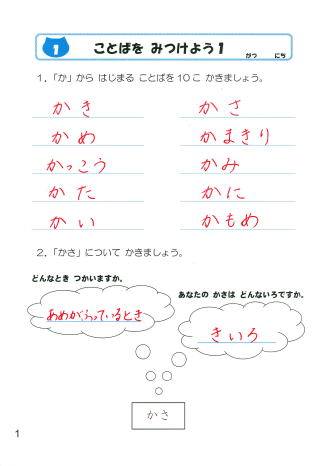 1
ことばを みつけよう1
がつ にち
1．「か」から はじまる ことばを10こ かきましょう。
かき かさ
かめ かまきり
かっこう かみ
かた かに
かい かもめ
2．「かさ」について かきましょう。
どんなとき つかいますか。
あなたの かさは どんないろですか。
あめがふっているとき
きいろ
かさ
1